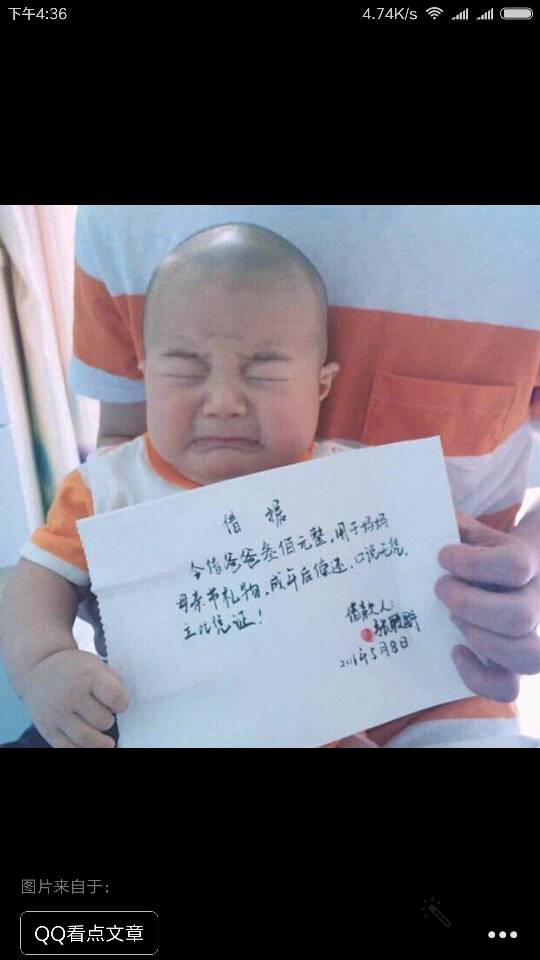 下午4:36
4.74K/s
借据
今借爸爸叁佰元整,用于妈妈
母亲节礼物,成年后偿还,口说无凭,
立此凭证!
借款人:
张
2016年5月8日
图片来自于:
QQ看点文章